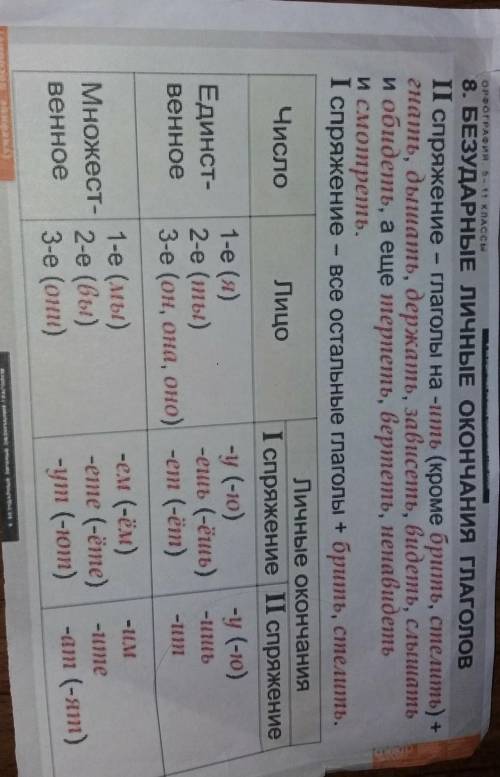 ОРФОГРАФИЯ 5–11 КЛАССЫ
8. БЕЗУДАРНЫЕ ЛИЧНЫЕ ОКОНЧАНИЯ ГЛАГОЛОВ
II спряжение – глаголы на -ить (кроме брить, стелить) +
гнать, дышать, держать, зависеть, видеть, слышать
и обидеть, а еще терпеть, вертеть, ненавидеть
и смотреть.
I спряжение – все остальные глаголы + брить, стелить.
Число Лицо Личные окончания
I спряжение II спряжение
Единст-
венное
1-е (я) -у (-ю) -у (-ю)
2-е (ты) -ешь (-ёшь) -ишь
3-е (он, она, оно) -ет (-ёт) -ит
Множест-
венное
1-е (мы) -ем (-ём) -им
2-е (вы) -ете (-ёте) -ите
3-е (они) -ут (-ют) -ат (-ят)